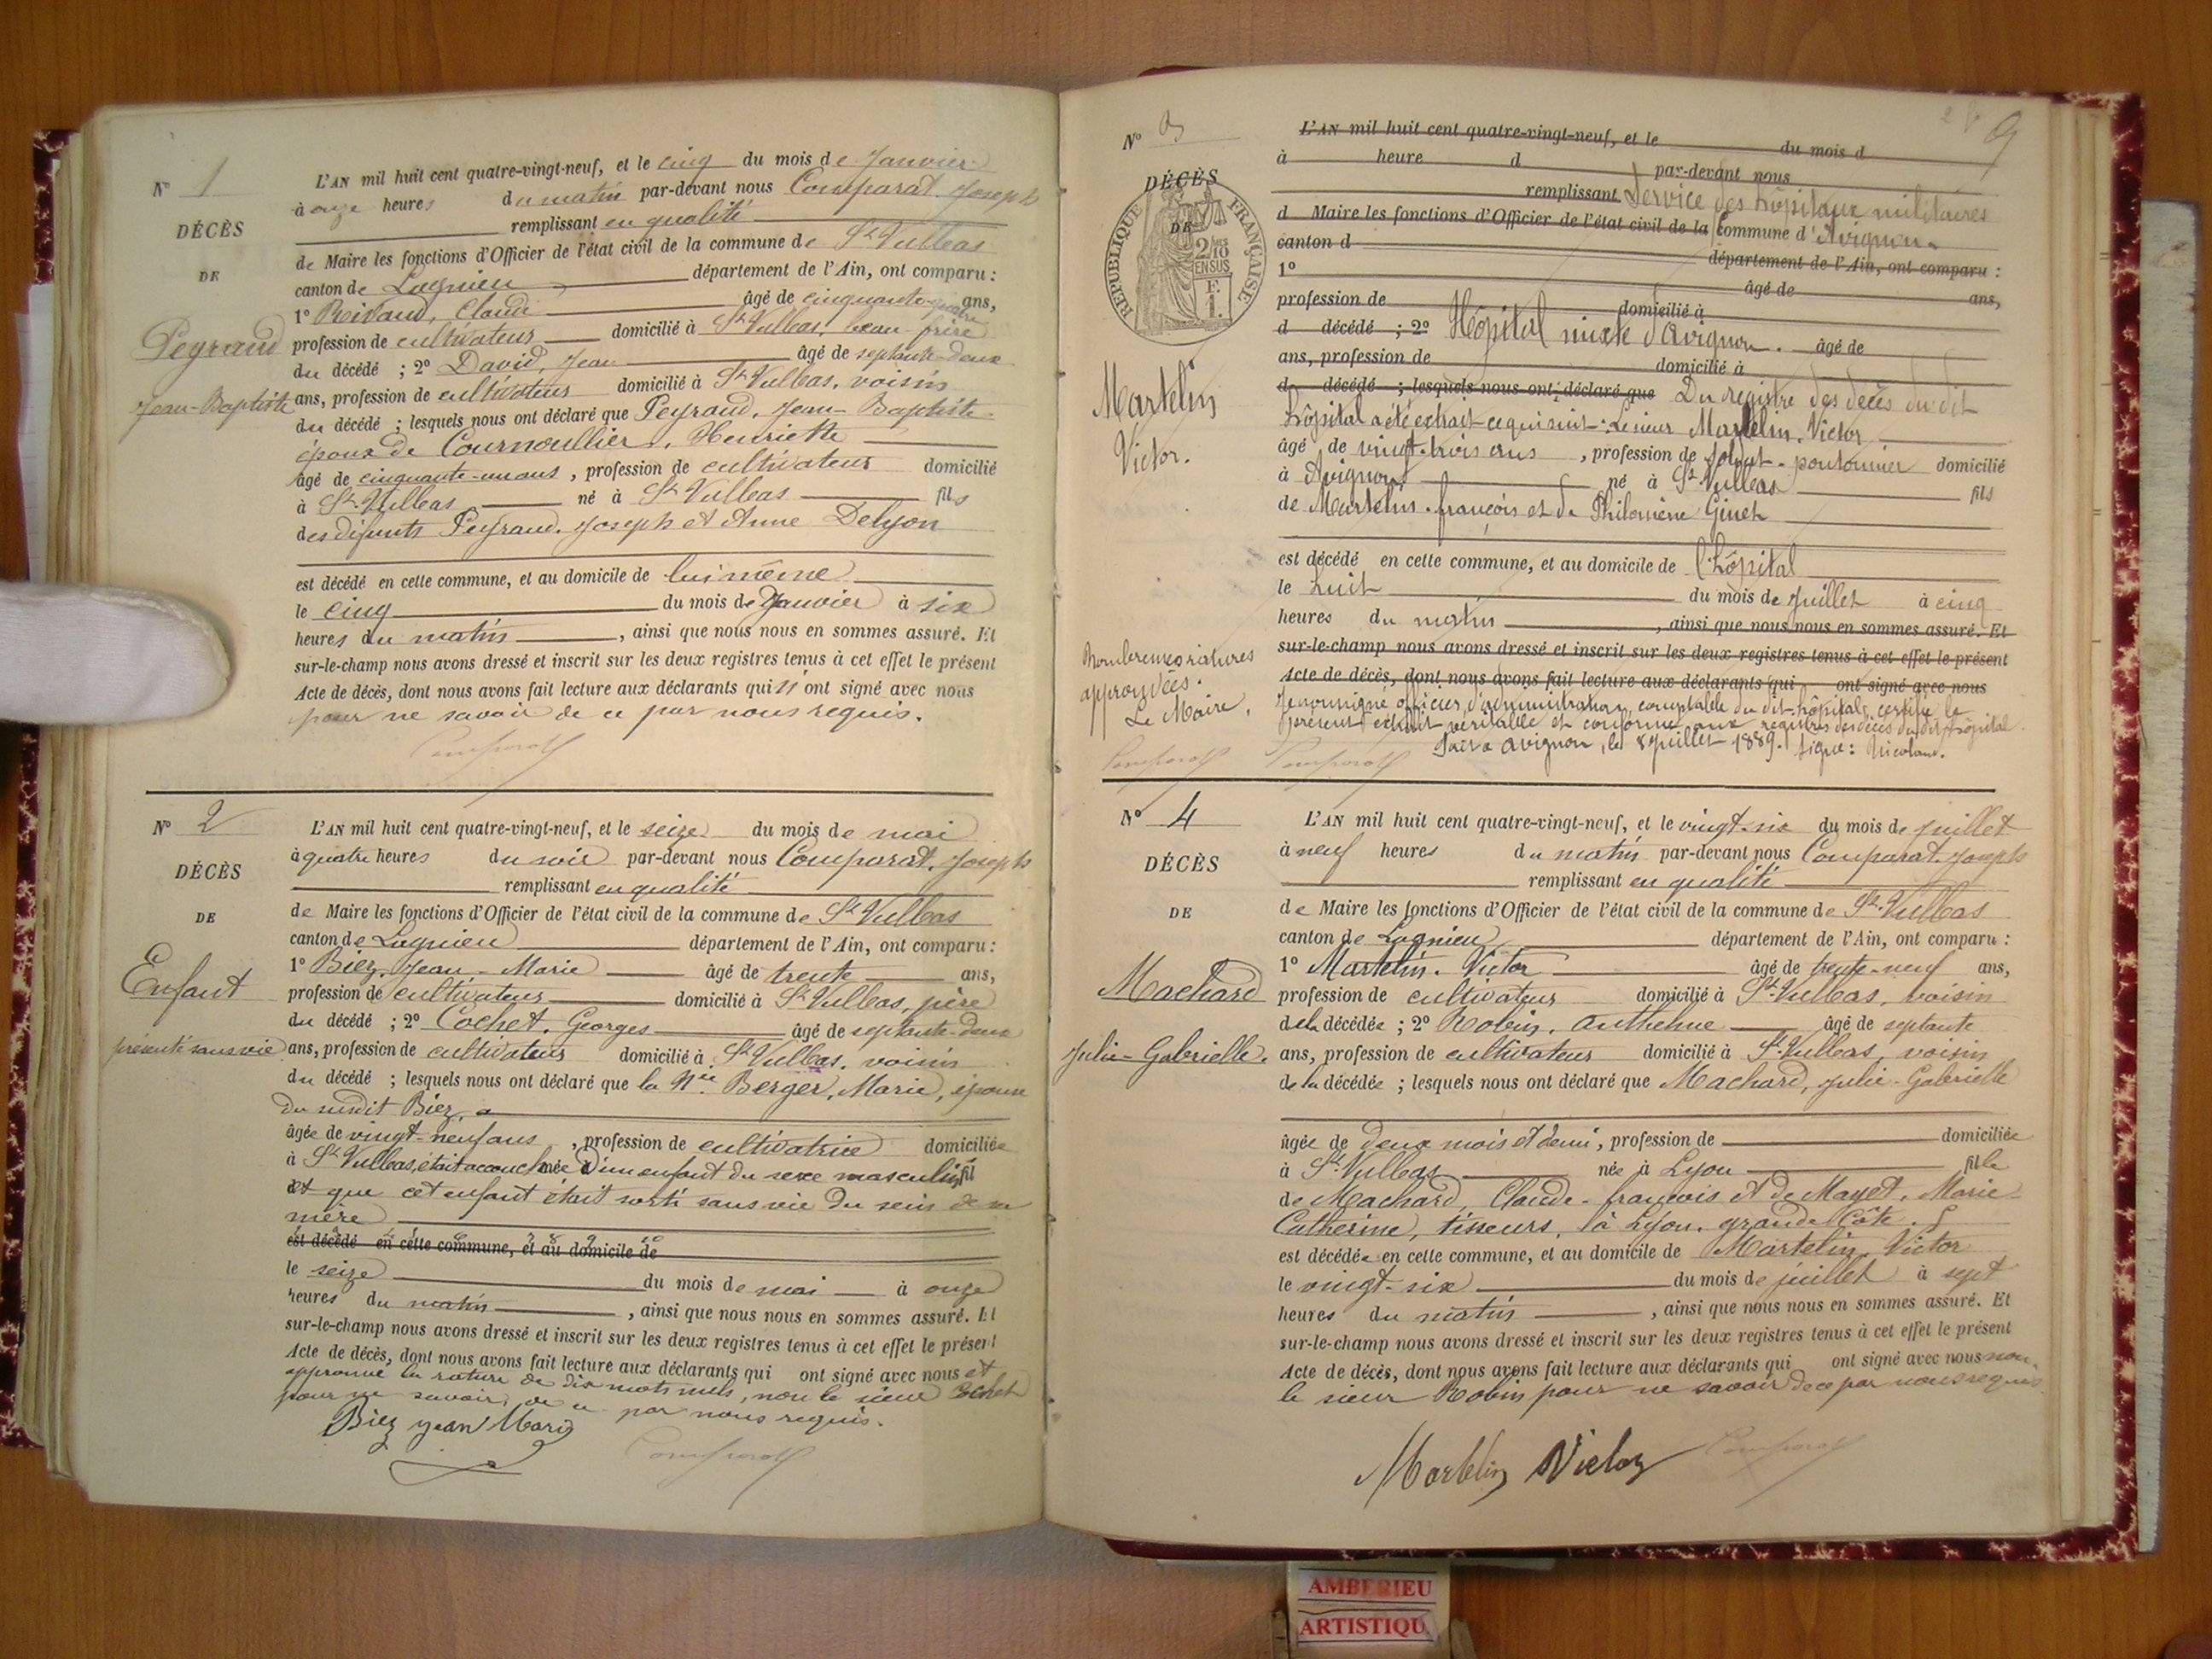 N° 1
DÉCÈS
DE
Peyraud
Jean-Baptiste
L'AN mil huit cent quatre-vingt-neuf, et le cinq du mois de Janvier
à onze heures du matin par-devant nous Comparat, Joseph
remplissant en qualité
de Maire les fonctions d'Officier de l'état civil de la commune de St Vulbas
canton de Lagnieu département de l'Ain, ont comparu :
1° Rivaud, Claude âgé de cinquante-quatre ans,
profession de cultivateur domicilié à St Vulbas, beau-frère
du décédé ; 2° David, Jean âgé de septante-deux
ans, profession de cultivateur domicilié à St Vulbas, voisin
du décédé ; lesquels nous ont déclaré que Peyraud, Jean-Baptiste
époux de Cournoullier, Henriette
âgé de cinquante-un ans, profession de cultivateur domicilié
à St Vulbas né à St Vulbas fils
des défunts Peyraud, Joseph et Anne Delyon
est décédé en cette commune, et au domicile de lui même
le cinq du mois de Janvier à six
heures du matin, ainsi que nous nous en sommes assuré. Et
sur-le-champ nous avons dressé et inscrit sur les deux registres tenus à cet effet le présent
Acte de décès, dont nous avons fait lecture aux déclarants qui n'ont signé avec nous
pour ne savoir de ce par nous requis.
Comparat
N° 2
DÉCÈS
DE
Enfant
présenté sans vie
L'AN mil huit cent quatre-vingt-neuf, et le seize du mois de mai
à quatre heures du soir par-devant nous Comparat, Joseph
remplissant en qualité
de Maire les fonctions d'Officier de l'état civil de la commune de St Vulbas
canton de Lagnieu département de l'Ain, ont comparu :
1° Biez, Jean-Marie âgé de trente ans,
profession de cultivateur domicilié à St Vulbas, père
du décédé ; 2° Cochet, Georges âgé de septante-deux
ans, profession de cultivateur domicilié à St Vulbas, voisin
du décédé ; lesquels nous ont déclaré que la née Berger, Marie, épouse
du susdit Biez, a
âgée de vingt-neuf ans, profession de cultivatrice domiciliée
à St Vulbas, était accouchée d'un enfant du sexe masculin, fil
et que cet enfant était sorti sans vie du sein de sa
mère
est décédé en cette commune, et au domicile de
le seize du mois de mai à onze
heures du matin, ainsi que nous nous en sommes assuré. Et
sur-le-champ nous avons dressé et inscrit sur les deux registres tenus à cet effet le présent
Acte de décès, dont nous avons fait lecture aux déclarants qui ont signé avec nous et
approuvé la rature de dix mots nuls, non le sieur Cochet
pour ne savoir, de ce par nous requis.
Biez Jean Marie
Comparat
9
N° 3
DÉCÈS
DE
RÉPUBLIQUE FRANÇAISE
2/10 EN SUS
F. 1.
Martelin
Victor.
Nombreuses ratures
approuvées.
Le Maire,
Comparat
L'AN mil huit cent quatre-vingt-neuf, et le du mois d
à heure d par-devant nous
remplissant Service des hôpitaux militaires
d Maire les fonctions d'Officier de l'état civil de la commune d'Avignon
canton d département de l'Ain, ont comparu :
1° âgé de ans,
profession de domicilié à
d décédé ; 2° Hôpital mixte d'Avignon. âgé de
ans, profession de domicilié à
d décédé ; lesquels nous ont déclaré que Du registre des décès du dit
hôpital a été extrait ce qui suit : Le sieur Martelin, Victor
âgé de vingt-trois ans, profession de soldat-pontonnier domicilié
à Avignon né à St Vulbas fils
de Martelin, françois et de Philomène Ginet
est décédé en cette commune, et au domicile de l'hôpital
le huit du mois de juillet à cinq
heures du matin, ainsi que nous nous en sommes assuré. Et
sur-le-champ nous avons dressé et inscrit sur les deux registres tenus à cet effet le présent
Acte de décès, dont nous avons fait lecture aux déclarants qui ont signé avec nous
Je soussigné officier d'administration comptable du dit hôpital, certifie le
présent extrait véritable et conforme aux registres des décès du dit hôpital
Fait à Avignon, le 8 Juillet 1889. Signé : Nicolaus.
Comparat
N° 4
DÉCÈS
DE
Machard
Julie-Gabrielle.
L'AN mil huit cent quatre-vingt-neuf, et le vingt-six du mois de juillet
à neuf heures du matin par-devant nous Comparat, Joseph
remplissant en qualité
de Maire les fonctions d'Officier de l'état civil de la commune de St Vulbas
canton de Lagnieu département de l'Ain, ont comparu :
1° Martelin, Victor âgé de trente-neuf ans,
profession de cultivateur domicilié à St Vulbas, voisin
de la décédée ; 2° Robin, Anthelme âgé de septante
ans, profession de cultivateur domicilié à St Vulbas, voisin
de la décédée ; lesquels nous ont déclaré que Machard, Julie-Gabrielle
âgée de deux mois et demi, profession de domiciliée
à St Vulbas née à Lyon fille
de Machard, Claude-françois et de Mayet, Marie-
Catherine, tisseurs, à Lyon, grande Côte.
est décédée en cette commune, et au domicile de Martelin, Victor
le vingt-six du mois de juillet à sept
heures du matin, ainsi que nous nous en sommes assuré. Et
sur-le-champ nous avons dressé et inscrit sur les deux registres tenus à cet effet le présent
Acte de décès, dont nous avons fait lecture aux déclarants qui ont signé avec nous non
le sieur Robin pour ne savoir de ce par nous requis
Martelin Victor
Comparat
AMBERIEU
ARTISTIQU